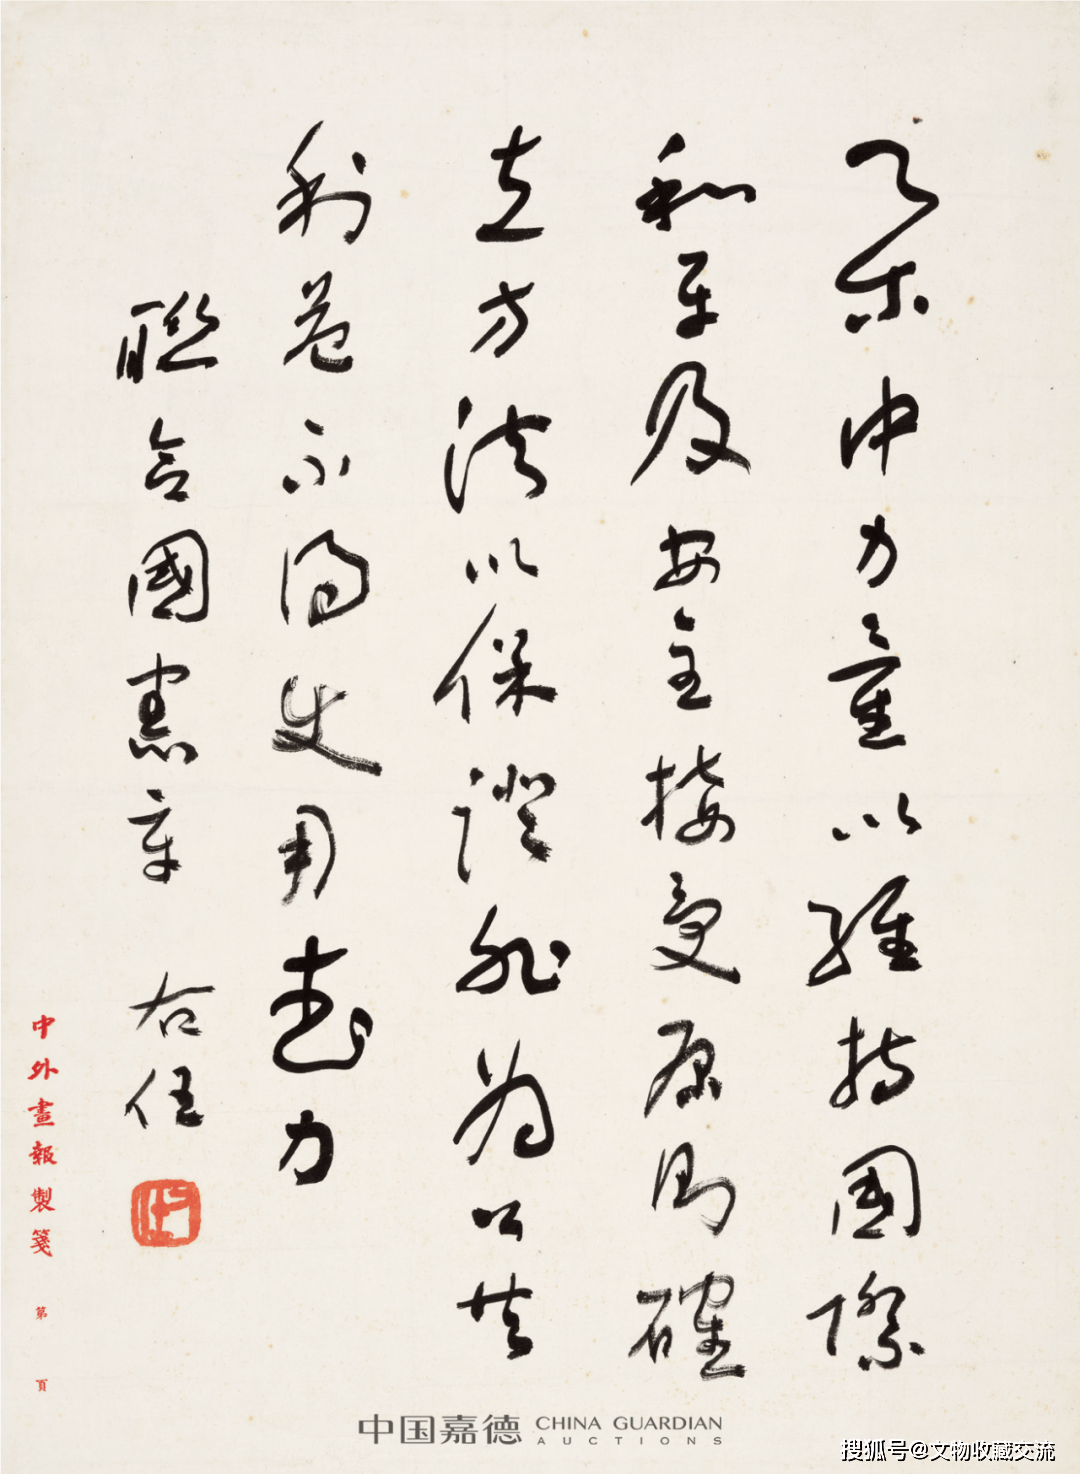 集中力量以維持國際
和平及安全接受原則確
立方法以保證非為公共
利益不得使用武力
聯合國憲章 右任
中外畫報製箋 第 頁
中国嘉德 CHINA GUARDIAN
AUCTIONS
搜狐号@文物收藏交流